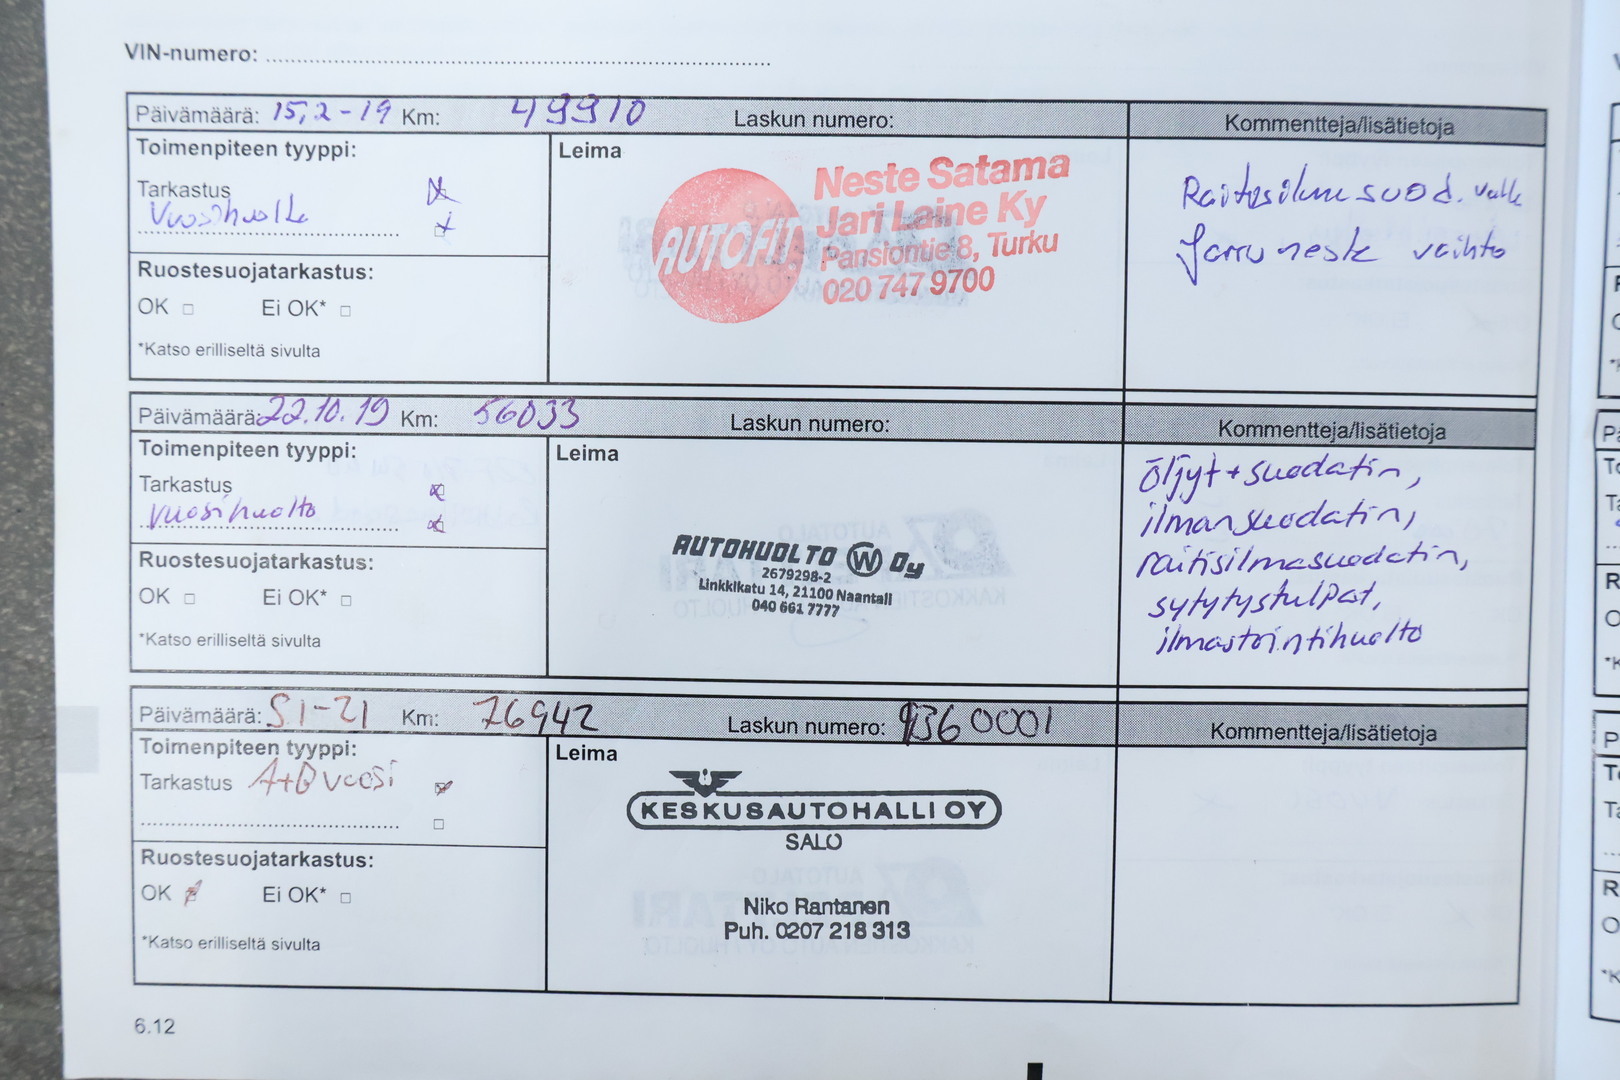 VIN-numero:
Päivämäärä: 15,2-19 Km: 49910 Laskun numero: Kommentteja/lisätietoja
Toimenpiteen tyyppi:
Tarkastus
Vuosihuolto
Ruostesuojatarkastus:
OK □ Ei OK* □
*Katso erilliseltä sivulta
Leima
AUTOFIT
Neste Satama
Jari Laine Ky
Pansiontie 8, Turku
020 747 9700
Raitisilmasuod. vaihto
Jarruneste vaihto
Päivämäärä: 22.10.19 Km: 56033 Laskun numero: Kommentteja/lisätietoja
Toimenpiteen tyyppi:
Tarkastus
vuosihuolto
Ruostesuojatarkastus:
OK □ Ei OK* □
*Katso erilliseltä sivulta
Leima
AUTOHUOLTO W Oy
2679298-2
Linkkikatu 14, 21100 Naantali
040 661 7777
öljyt+suodatin,
ilmansuodatin,
raitisilmasuodatin,
sytytystulpat,
ilmastointihuolto
Päivämäärä: 51-21 Km: 76942 Laskun numero: 9360001 Kommentteja/lisätietoja
Toimenpiteen tyyppi:
Tarkastus A+B vuosi
Ruostesuojatarkastus:
OK Ei OK* □
*Katso erilliseltä sivulta
Leima
KESKUSAUTOHALLI OY
SALO
Niko Rantanen
Puh. 0207 218 313
6.12